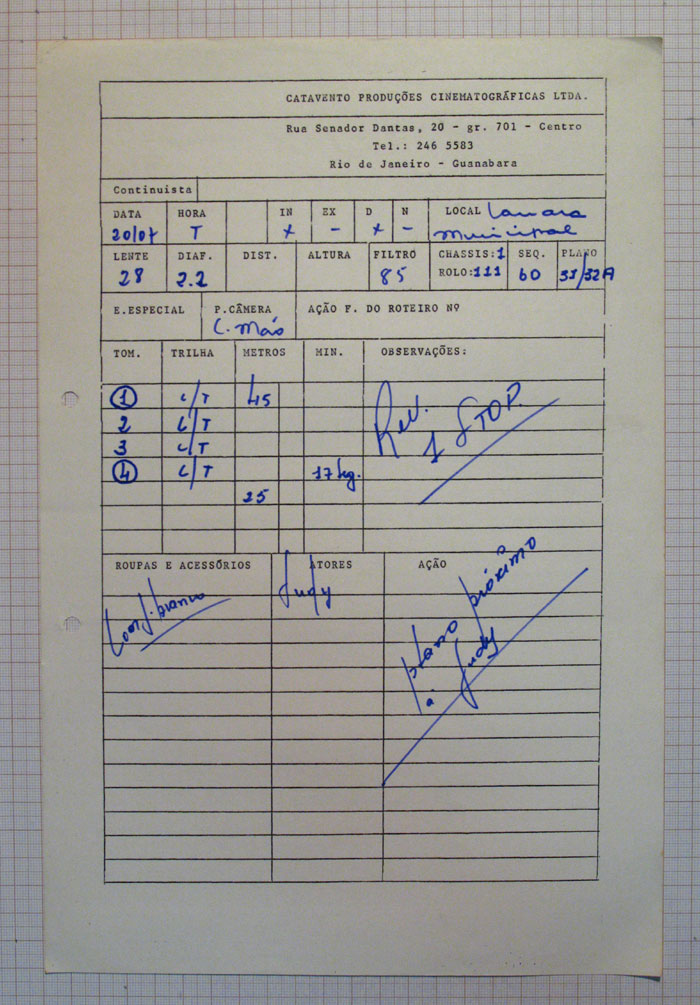 CATAVENTO PRODUÇÕES CINEMATOGRÁFICAS LTDA.
Rua Senador Dantas, 20 - gr. 701 - Centro
Tel.: 246 5583
Rio de Janeiro - Guanabara
Continuista
DATA HORA IN EX D N LOCAL Camara
20/07 T x - x - Municipal
LENTE DIAF. DIST. ALTURA FILTRO CHASSIS:1 SEQ. PLANO
28 2.2 85 ROLO:111 60 31/32A
E.ESPECIAL P.CÂMERA AÇÃO F. DO ROTEIRO Nº
C. Mão
TOM. TRILHA METROS MIN. OBSERVAÇÕES:
1 C/T 45
2 C/T
3 C/T
4 C/T 17
25
Rev.
1 STOP.
ROUPAS E ACESSÓRIOS ATORES AÇÃO
Conj. branco Judy
plano próximo
à Judy